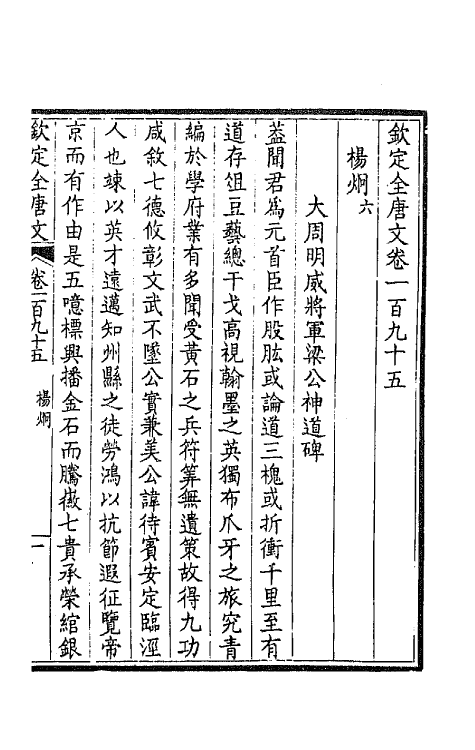 欽定全唐文卷一百九十五
楊炯六
大周明威將軍梁公神道碑
葢聞君爲元首臣作股肱或論道三槐或折衝千里至有
道存俎豆藝總干戈高視翰墨之英獨布爪牙之旅究青
編於學府業有多聞受黃石之兵符筭無遺策故得九功
咸敘七德攸彰文武不墜公實兼美公諱待賓安定臨涇
人也竦以英才遠邁知州縣之徒勞鴻以抗節遐征覽帝
京而有作由是五噫標興播金石而騰徽七貴承榮綰銀
欽定全唐文 卷一百九十五 楊炯 一